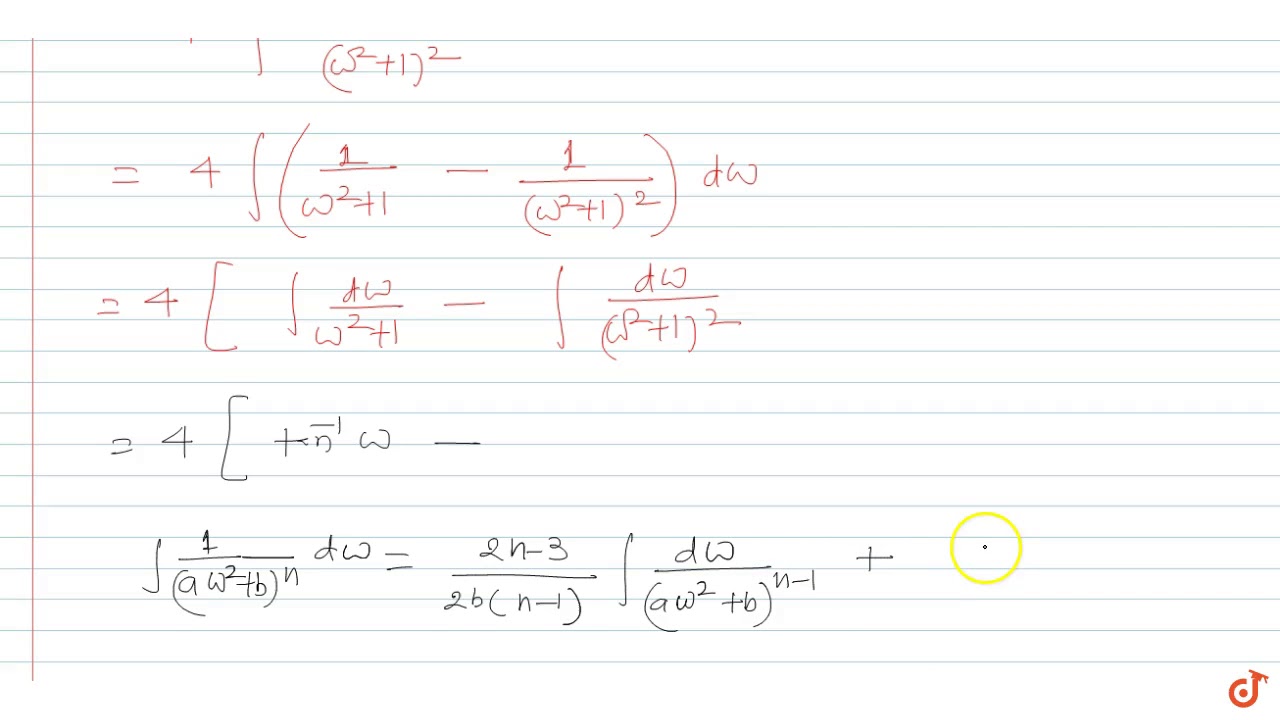 ∫ (ω²+1)²
= 4 ∫ ( 1/(ω²+1) − 1/(ω²+1)² ) dω
= 4 [ ∫ dω/(ω²+1) − ∫ dω/(ω²+1)²
= 4 [ tan⁻¹ ω −
∫ 1/(aω²+b)ⁿ dω = (2n−3)/(2b(n−1)) ∫ dω/(aω²+b)ⁿ⁻¹ +